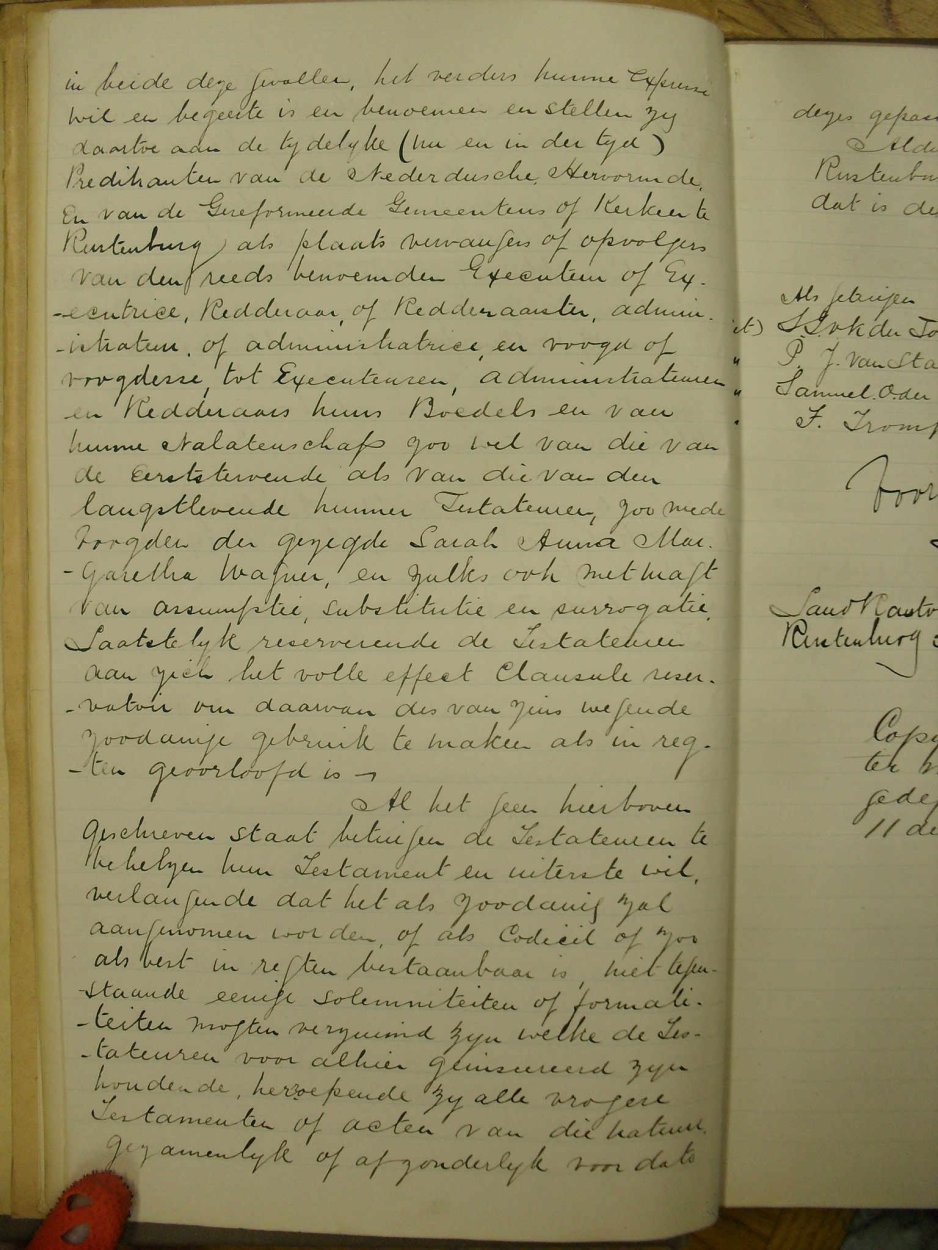 in beide deze gevallen, het verders hunne Expresse
wil en begeerte is en benoemen en stellen zy
daartoe aan de tydelyke (nu en in der tyd)
Predikanten van de Nederduische, Hervormde,
En van de Gereformeerde Gemeentens of Kerken te
Rustenburg) als plaats vervangers of opvolgers
van den reeds benoemden Executeur of Ex-
-ecutrice, Redderaar, of Redderaarster, admin-
-istrateur, of administratrice, en voogd of
voogdesse, tot Executeuren, administrateuren
en Redderaars huns Boedels en van
hunne Nalatenschap zoo wel van die van
de Eerststervende als van die van den
langstlevende hunner Testateuren, zoo mede
voogden der gezegde Sarah Anna Mar-
-garetha Wagner, en zulks ook met magt
van assumptie, substitutie en surrogatie,
Laatstelyk reserverende de Testateuren
aan zich het volle effect Clausule reser-
-vatoir om daarvan des van zins wezende
zoodanige gebruik te maken als in reg-
-ten geoorloofd is
Al het geen hierboven
geschreven staat betuigen de Testateuren te
behelzen hun Testament en uiterste wil,
verlangende dat het als zoodanig zal
aangenomen worden, of als Codicil of zoo
als best in regten bestaanbaar is, niet tegen-
-staande eenige solemniteiten of formali-
-teiten mogten verzuimd zyn welke de Tes-
-tateuren voor alhier geinsereerd zyn
houdende, herroepende zy alle vrogere
Testamenten of acten van die natuur
gezamenlyk of afzonderlyk voor dato
dezes
Rustenburg
dat is
Als getuigen
P. J. van
Samuel
F. Tromp
Voor
Rustenburg
ter
11 de